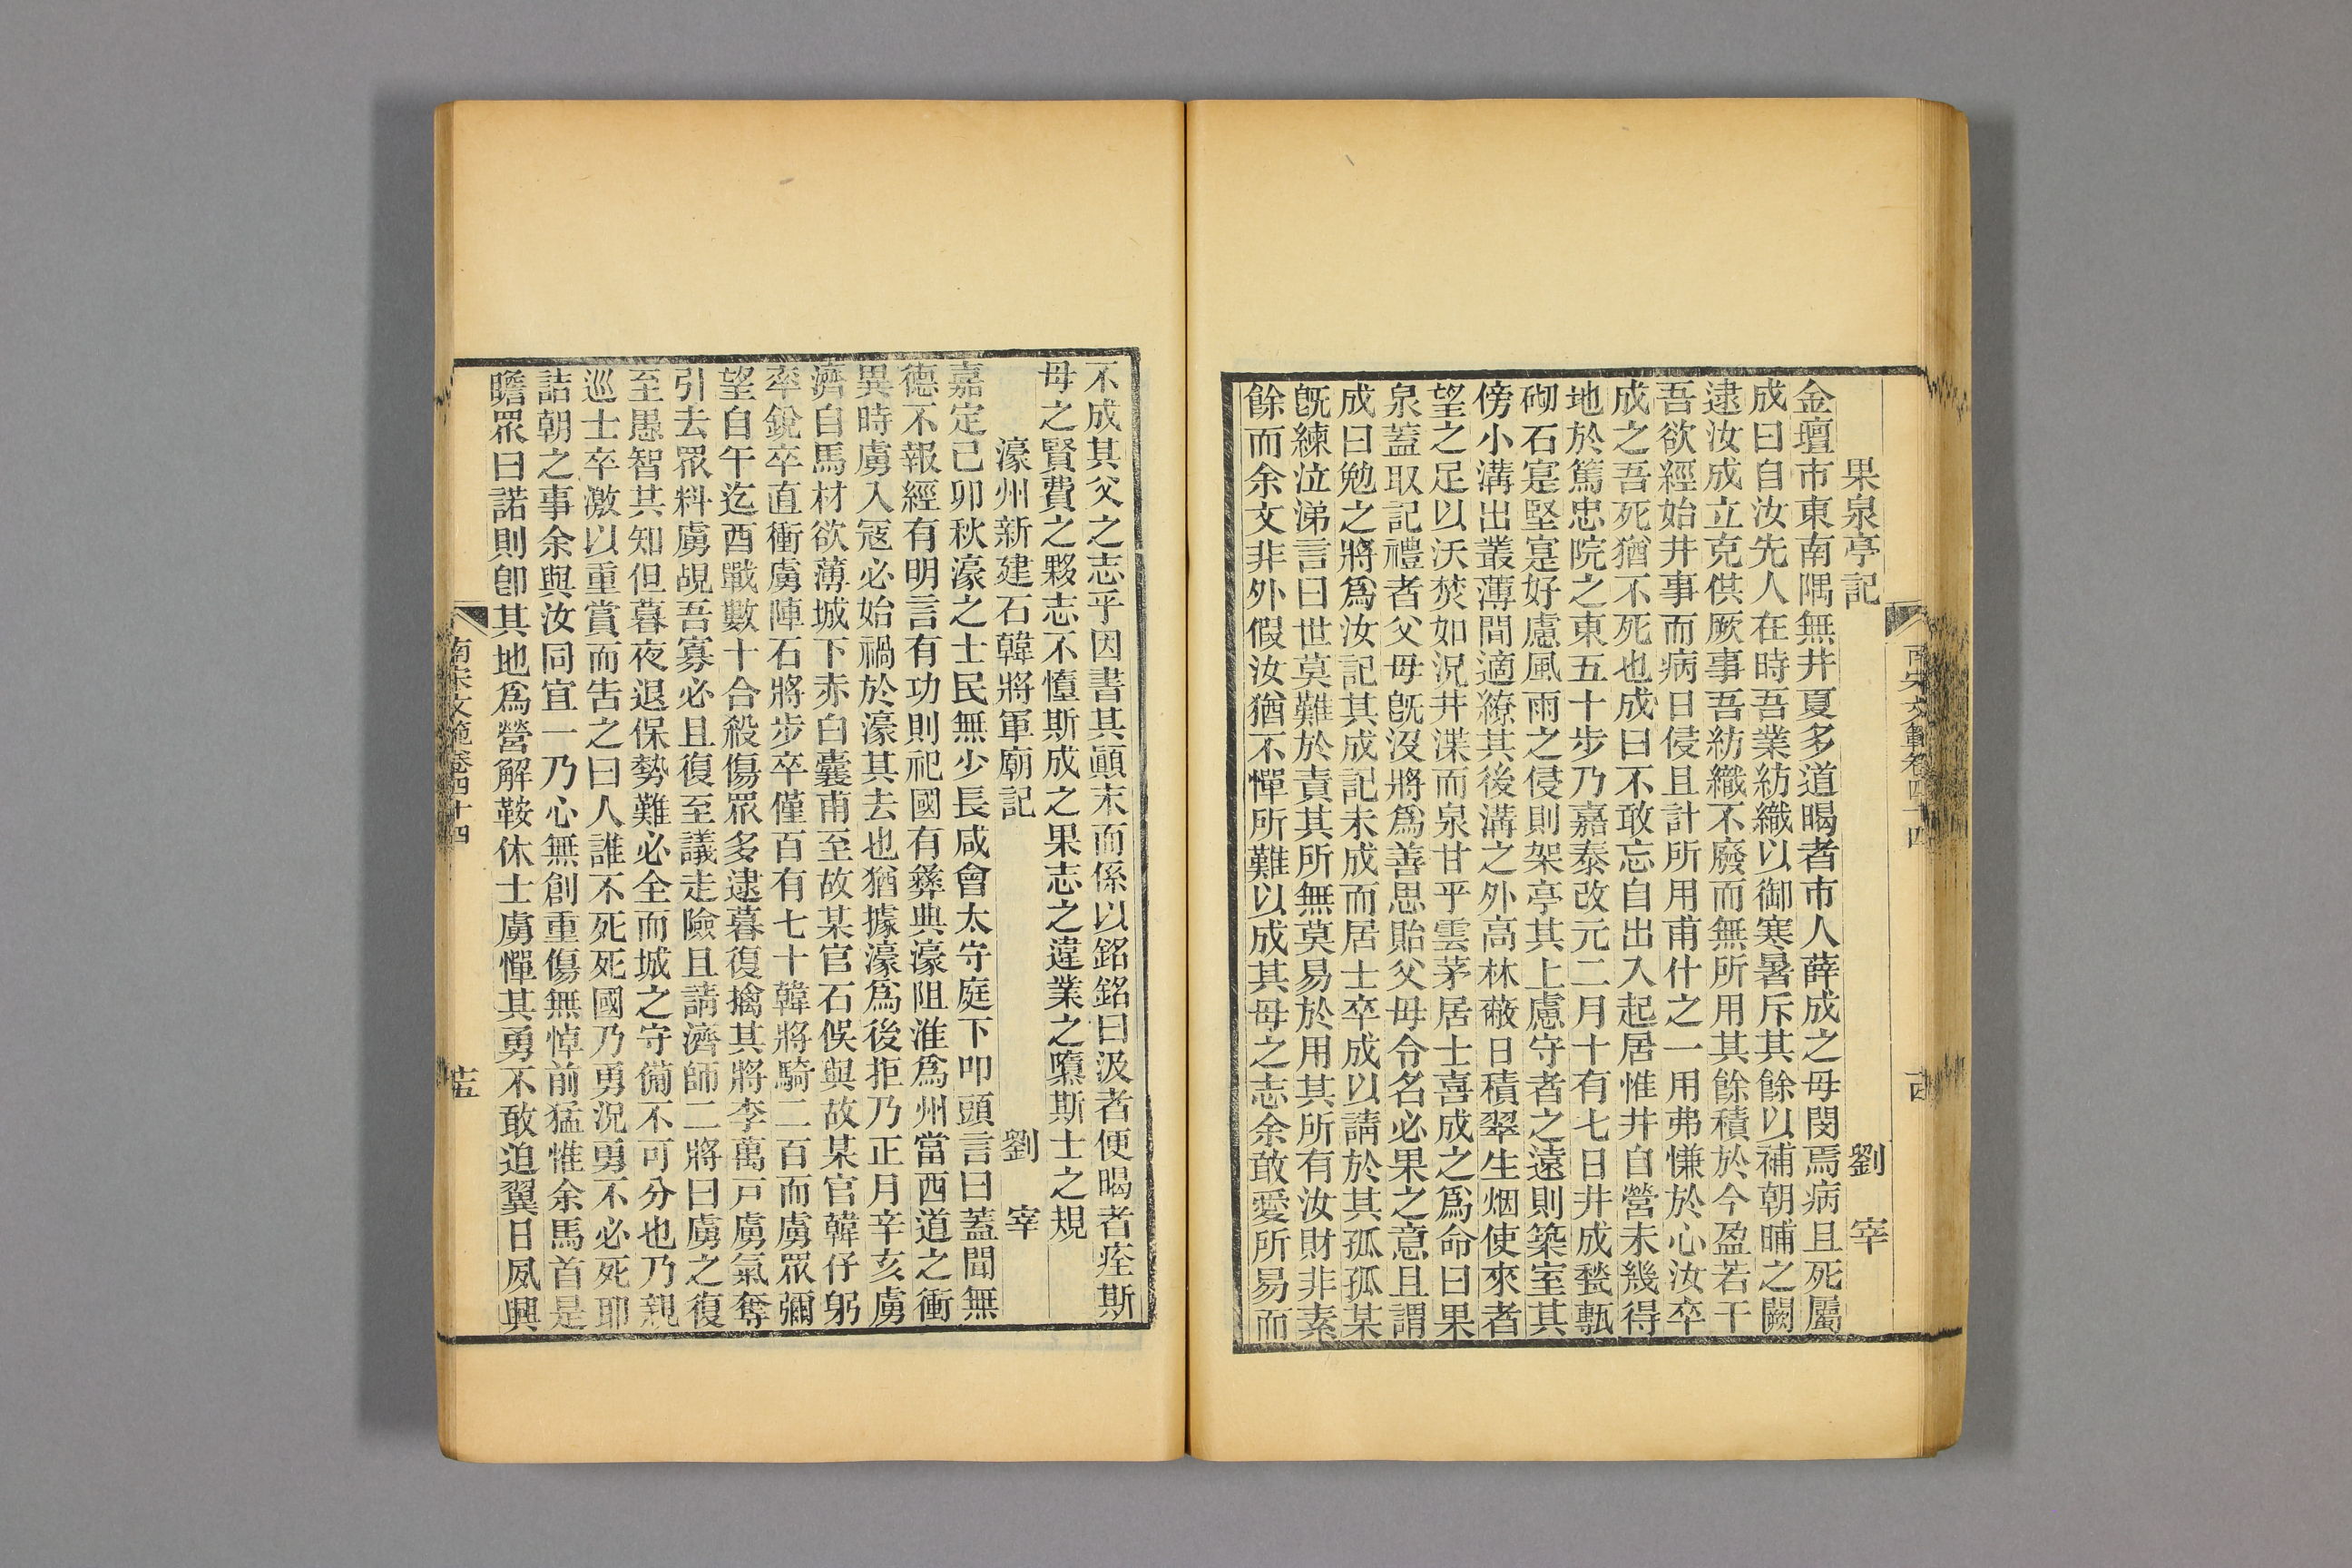 果泉亭記　劉　宰
金壇市東南隅無井夏多道暍者市人薛成之母閔焉病且死屬
成曰自汝先人在時吾業紡織以御寒暑斥其餘以補朝晡之闕
逮汝成立克供厥事吾紡織不廢而無所用其餘積於今盈若干
吾欲經始井事而病日侵且計所用甫什之一用弗慊於心汝卒
成之吾死猶不死也成曰不敢忘自出入起居惟井自營未幾得
地於篤忠院之東五十步乃嘉泰改元二月十有七日井成甃甎
砌石寔堅寔好慮風雨之侵則架亭其上慮守者之遠則築室其
傍小溝出叢薄間適繚其後溝之外高林蔽日積翠生烟使來者
望之足以沃焚如況井渫而泉甘乎雲茅居士喜成之爲命曰果
泉蓋取記禮者父母旣沒將爲善思貽父母令名必果之意且謂
成曰勉之將爲汝記其成記未成而居士卒成以請於其孤孤某
旣練泣涕言曰世莫難於責其所無莫易於用其所有汝財非素
餘而余文非外假汝猶不憚所難以成其母之志余敢愛所易而
南宋文範卷四十四
不成其父之志乎因書其顚末而係以銘銘曰汲者便暍者痊斯
母之賢費之夥志不惰斯成之果志之違業之隳斯士之規
濠州新建石韓將軍廟記　劉　宰
嘉定己卯秋濠之士民無少長咸會太守庭下叩頭言曰蓋聞無
德不報經有明言有功則祀國有彝典濠阻淮爲州當西道之衝
異時虜入寇必始禍於濠其去也猶據濠爲後拒乃正月辛亥虜
濟自馬材欲薄城下赤白囊甫至故某官石俁與故某官韓仔躬
率銳卒直衝虜陣石將步卒僅百有七十韓將騎二百而虜眾彌
望自午迄酉戰數十合殺傷眾多逮暮復擒其將李萬戸虜氣奪
引去眾料虜覘吾寡必且復至議走險且請濟師二將曰虜之復
至愚智其知但暮夜退保勢難必全而城之守備不可分也乃親
巡士卒激以重賞而吿之曰人誰不死死國乃勇況勇不必死耶
詰朝之事余與汝同宜一乃心無創重傷無悼前猛惟余馬首是
瞻眾曰諾則卽其地爲營解鞍休士虜憚其勇不敢迫翼日夙興
南宋文範卷四十四